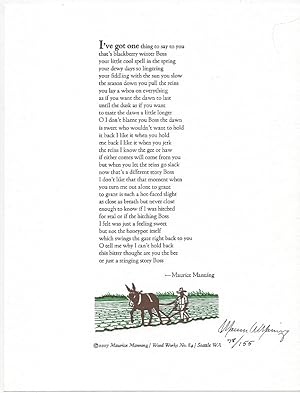 I've got one thing to say to you
that's blackberry winter Boss
your little cool spell in the spring
your dewy days so lingering
your fiddling with the sun you slow
the season down you pull the reins
you lay a whoa on everything
as if you want the dawn to last
until the dusk as if you want
to taste the dawn a little longer
O I don't blame you Boss the dawn
is sweet who wouldn't want to hold
it back I like it when you hold
me back I like it when you jerk
the reins I know the gee or haw
if either comes will come from you
but when you let the reins go slack
now that's a different story Boss
I don't like that that moment when
you turn me out alone to graze
to graze is such a hot-faced slight
as close as breath but never close
enough to know if I was hitched
for real or if the hitching Boss
I felt was just a feeling sweet
but not the honeypot itself
which swings the gate right back to you
O tell me why I can't hold back
this bitter thought are you the bee
or just a stinging story Boss
—Maurice Manning
Maurice Manning
78/155
©2007 Maurice Manning / Wood Works No. 84 / Seattle WA